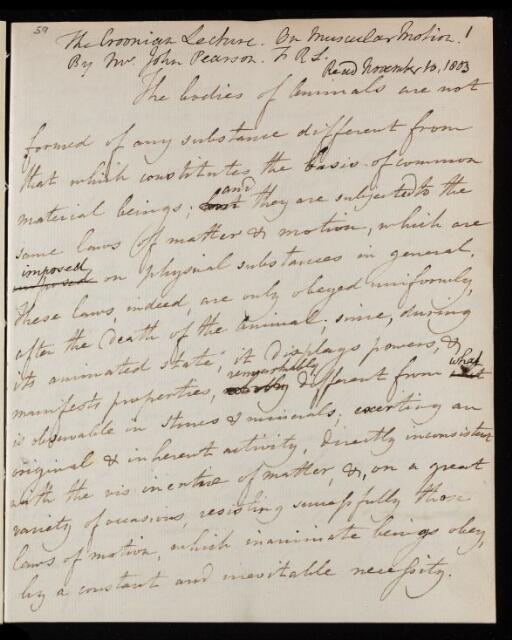 59
The Croonian Lecture. On Muscular Motion. 1
By Mr. John Pearson. F R S.
Read November 10, 1803
The bodies of Animals are not
formed of any substance different from
that which constitutes the basis of common
and
material beings; but they are subjected to the
same laws of matter & motion, which are
imposed
imposed on physical substances in general.
These laws, indeed, are only obeyed uniformly,
after the death of the animal; since, during
its animated state, it displays powers, &
remarkably what
manifests properties, different from
is observable in stones & minerals; exerting an
original & inherent activity, directly inconsistent
with the vis inertiae of matter, &, on a great
variety of occasions, resisting successfully those
laws of motion, which inanimate beings obey,
by a constant and inevitable necessity.